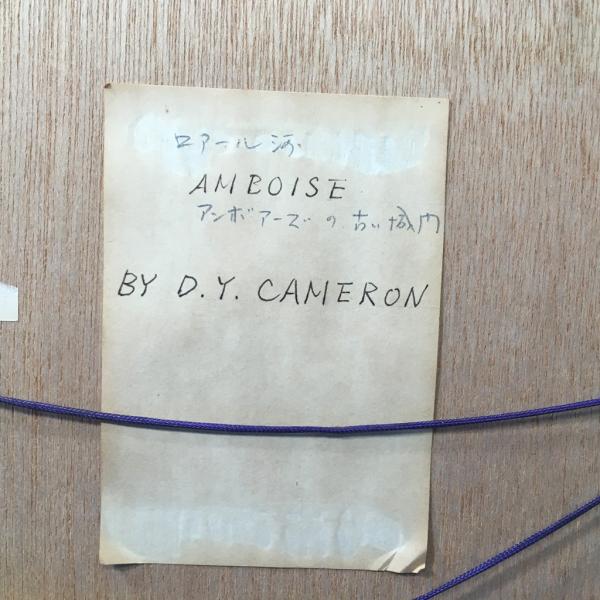 ロアール河
AMBOISE
アンボアーズの古い城門
BY D.Y. CAMERON